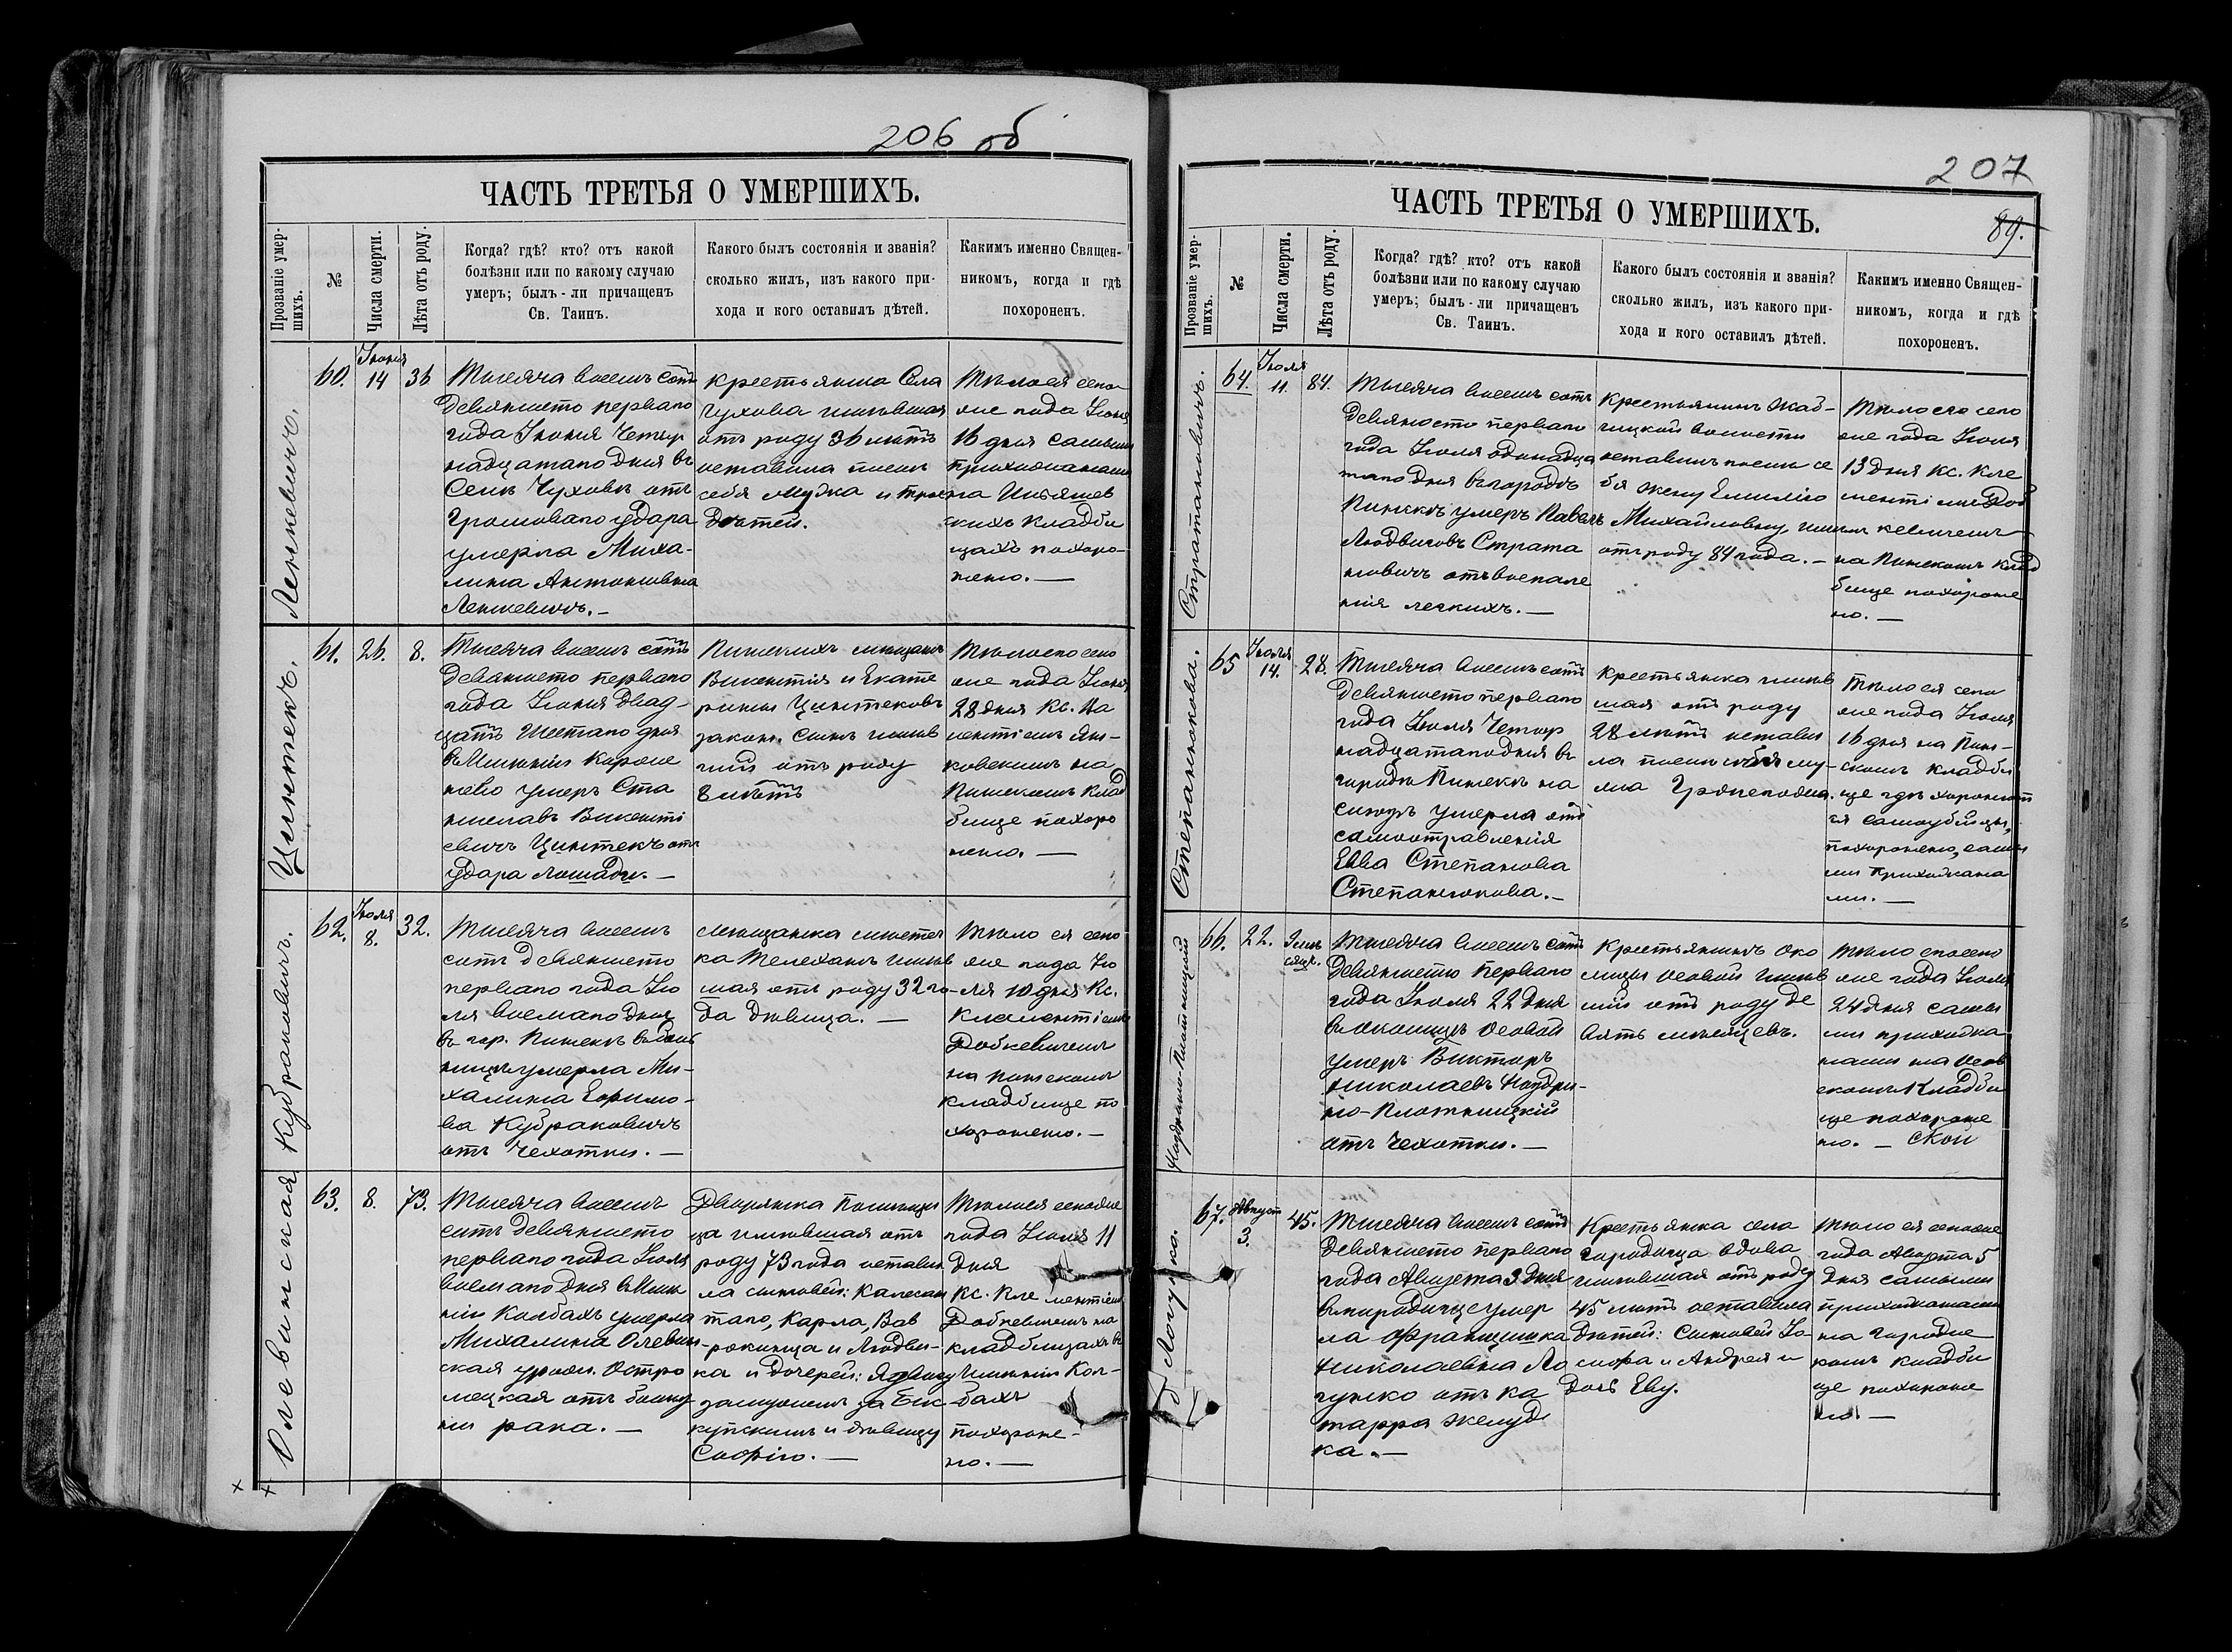 206 об
ЧАСТЬ ТРЕТЬЯ О УМЕРШИХЪ.
Прозваніе умер-
шихъ.
№
Числа смерти.
Лѣта отъ роду.
Когда? гдѣ? кто? отъ какой
болѣзни или по какому случаю
умеръ; былъ-ли причащенъ
Св. Таинъ.
Какого былъ состоянія и званія?
сколько жилъ, изъ какого при-
хода и кого оставилъ дѣтей.
Какимъ именно Священ-
никомъ, когда и гдѣ
похороненъ.
Ленкевичъ.
60.
Іюня
14
36
Тысяча восемь сотъ
девяносто перваго
года Іюня четыр
надцатаго дня въ
Селѣ Чуховѣ отъ
Громоваго удара
умерла Миха-
лина Антоновна
Ленкевичъ.—
крестьянка Села
Чухова имѣвшая
отъ роду 36 лѣтъ
оставила послѣ
себя мужа и трое
дѣтей.
Тѣло ея сего
же года Іюня
16 дня самыми
прихожанами
на
кихъ кладби
щахъ похоро-
нено.—
Цинтекъ.
61.
26.
8.
Тысяча восемь сотъ
девяносто перваго
года Іюня двад-
цать шестаго дня
въ Имѣніи Кароле
ново умеръ Ста
ниславъ Викенті
евичъ Цинтекъ отъ
удара лошади.—
Пинскихъ мѣщанъ
Викентія и Екате
рины Цинтековъ
закон. сынъ имѣв
шій отъ роду
8 лѣтъ
Тѣло его сего
же года Іюня
28 дня Кс.
Ян-
ковскимъ на
Пинскомъ клад
бище похоро
нено.—
Кубраковичъ.
62.
Іюля
8.
32.
Тысяча восемь
сотъ девяносто
перваго года Ію
ля восьмаго дня
въ гор. Пинскѣ въ боль
ницѣ умерла Ми-
халина Ефимо-
ва Кубраковичъ
отъ чехотки.—
мѣщанка мѣстеч
ка Телеханъ имѣв
шая отъ роду 32 го-
да дѣвица.—
Тѣло ея сего
же года Ію
ля 10 дня Кс.
Климентіемъ
Добкевичемъ
на пинскомъ
кладбище по
хоронено.—
Олевинская
63.
8.
73.
Тысяча восемь
сотъ девяносто
перваго года Іюля
восьмаго дня въ Имѣ
ніи Колбахъ умерла
Михалина Олевин-
ская урожд. Остро
мецкая отъ болѣз
ни рака.—
Дворянка помѣщи
ца имѣвшая отъ
роду 73 года остави
ла сыновей: Калесан
таго, Карла, Вав
ржинца и Людви-
ка и дочерей: Ядвигу
замужемъ за Бік
купскимъ и дѣвицу
Софію.—
Тѣло ея сего же
года Іюля 11
дня
Кс. Климентіемъ
Добкевичемъ на
кладбищахъ въ
Имѣніи Кол-
бахъ
похороне-
но.—
207
89.
ЧАСТЬ ТРЕТЬЯ О УМЕРШИХЪ.
Прозваніе умер-
шихъ.
№
Числа смерти.
Лѣта отъ роду.
Когда? гдѣ? кто? отъ какой
болѣзни или по какому случаю
умеръ; былъ-ли причащенъ
Св. Таинъ.
Какого былъ состоянія и званія?
сколько жилъ, изъ какого при-
хода и кого оставилъ дѣтей.
Какимъ именно Священ-
никомъ, когда и гдѣ
похороненъ.
Стратановичъ.
64.
Іюля
11.
84.
Тысяча восемь сотъ
девяносто перваго
года Іюля одинадца
таго дня въ городѣ
Пинскѣ умеръ Павелъ
Людвиговъ Страта
новичъ отъ воспале
нія легкихъ.—
Крестьянинъ Жаб-
чицкой волости
оставилъ послѣ се
бя жену Емилію
Михайловну, имѣлъ
отъ роду 84 года.—
Тѣло его сего
же года Іюля
13 дня Кс. Кле
ментіемъ Доб
кевичемъ
на Пинскомъ клад
бище похороне
но.—
Степанюкова.
65
Іюля
14.
28.
Тысяча восемь сотъ
девяносто перваго
года Іюля четыр
надцатаго дня въ
городѣ Пинскѣ на
умерла отъ
самоотравленія
Евва Степанова
Степанюкова.—
Крестьянка имѣв
шая отъ роду
28 лѣтъ остави
ла послѣ себя му-
жа
Тѣло ея сего
же года Іюля
16 дня на Пин-
скомъ кладби
ще гдѣ хоронят
ся самоубійцы,
похоронено, самы
ми прихожана
ми.—
66.
22.
9 мѣ
сяц.
Тысяча восемь сотъ
девяносто перваго
года Іюля 22 дня
въ околицѣ Особой
умеръ Викторъ
Николаевъ
но-Плотницкій
отъ чехотки.—
Крестьянинъ око
лицы Особой имѣв
шій отъ роду де
вять мѣсяцевъ.
Тѣло его сего
же года Іюля
24 дня самы
ми прихожа
нами на Особ
скомъ кладби
ще похороне
но.—
Логушко.
67.
Август
3.
45.
Тысяча восемь сотъ
девяносто перваго
года Августа 3 дня
въ городище умер
ла Францишка
Николаевна Ло
гушко отъ ка
тарра желуд
ка.—
Крестьянка села
городища вдова
имѣвшая отъ роду
45 лѣтъ оставила
дѣтей: сыновей Іо
сифа и Андрея и
дочь Еву.
Тѣло ея сего же
года Августа 5
дня самыми
прихожанами
на Городис
комъ кладби
ще похороне
но.—